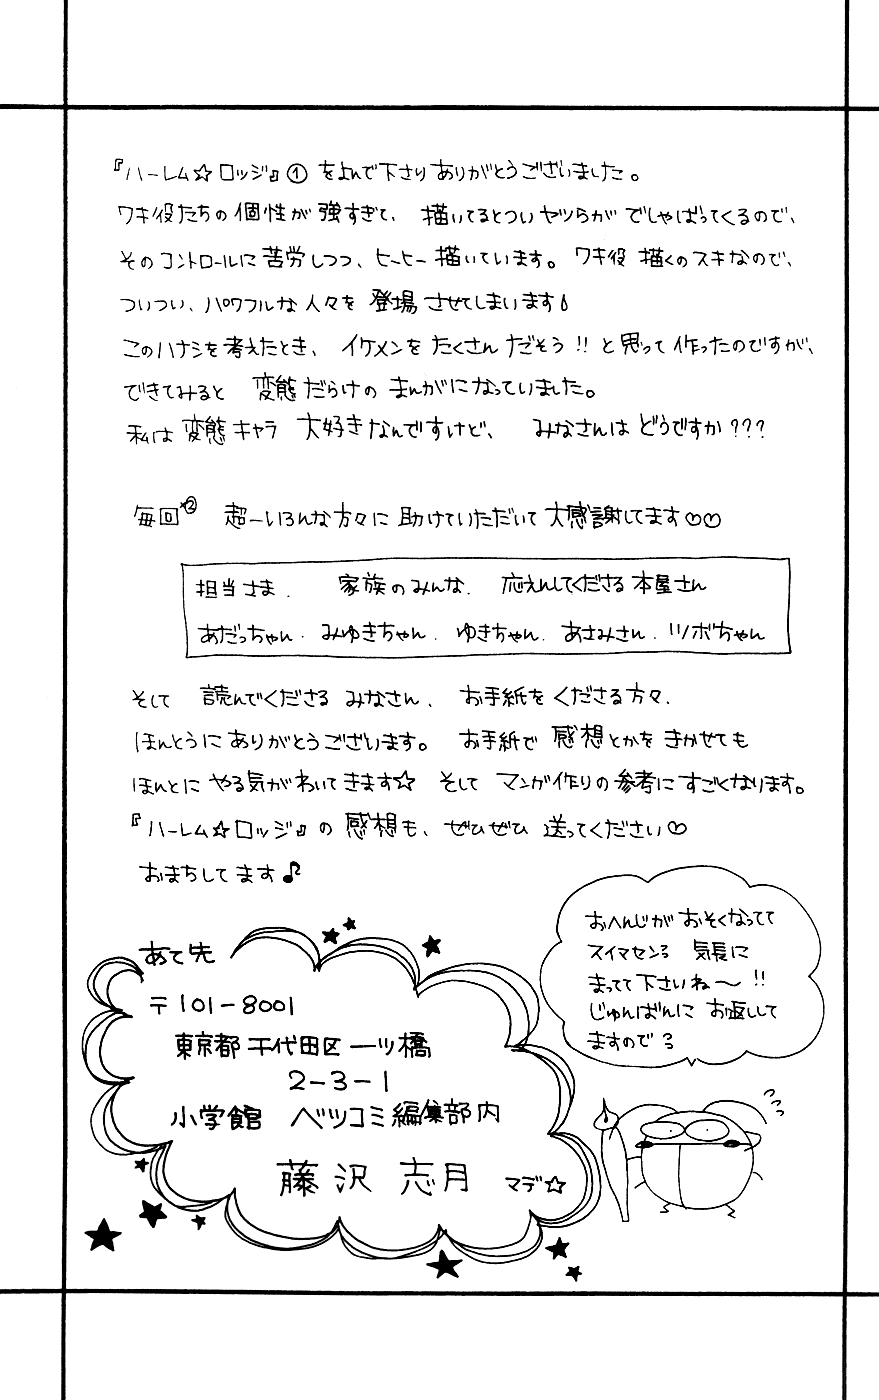 『ハーレム☆ロッジ』① をよんで下さりありがとうございました。
ワキ役たちの個性が強すぎて、描いてるとついヤツらがでしゃばってくるので、
そのコントロールに苦労しつつ、ヒーヒー描いています。ワキ役描くのスキなので、
ついつい、パワフルな人々を登場させてしまいます
このハナシを考えたとき、イケメンをたくさんだそう!!と思って作ったのですが、
できてみると変態だらけのまんがになっていました。
私は変態キャラ大好きなんですけど、みなさんはどうですか???
毎回×2 超ーいろんな方々に助けていただいて大感謝してます♡♡
担当さま. 家族のみんな. 応えんしてくださる本屋さん
あだっちゃん・みゆきちゃん. ゆきちゃん. あさみさん. ツボちゃん
そして 読んでくださるみなさん、お手紙をくださる方々、
ほんとうにありがとうございます。お手紙で感想とかをきかせても
ほんとにやる気がわいてきます☆ そしてマンガ作りの参考にすごくなります。
『ハーレム☆ロッジ』の感想も、ぜひぜひ送ってください♡
おまちしてます♪
おへんじがおそくなってて
スイマセンる 気長に
まってて下さいね〜!!
じゅんばんにお返しして
ますのでる
あて先
〒101-8001
東京都千代田区一ツ橋
2-3-1
小学館 ベツコミ編集部内
藤沢志月 マデ☆